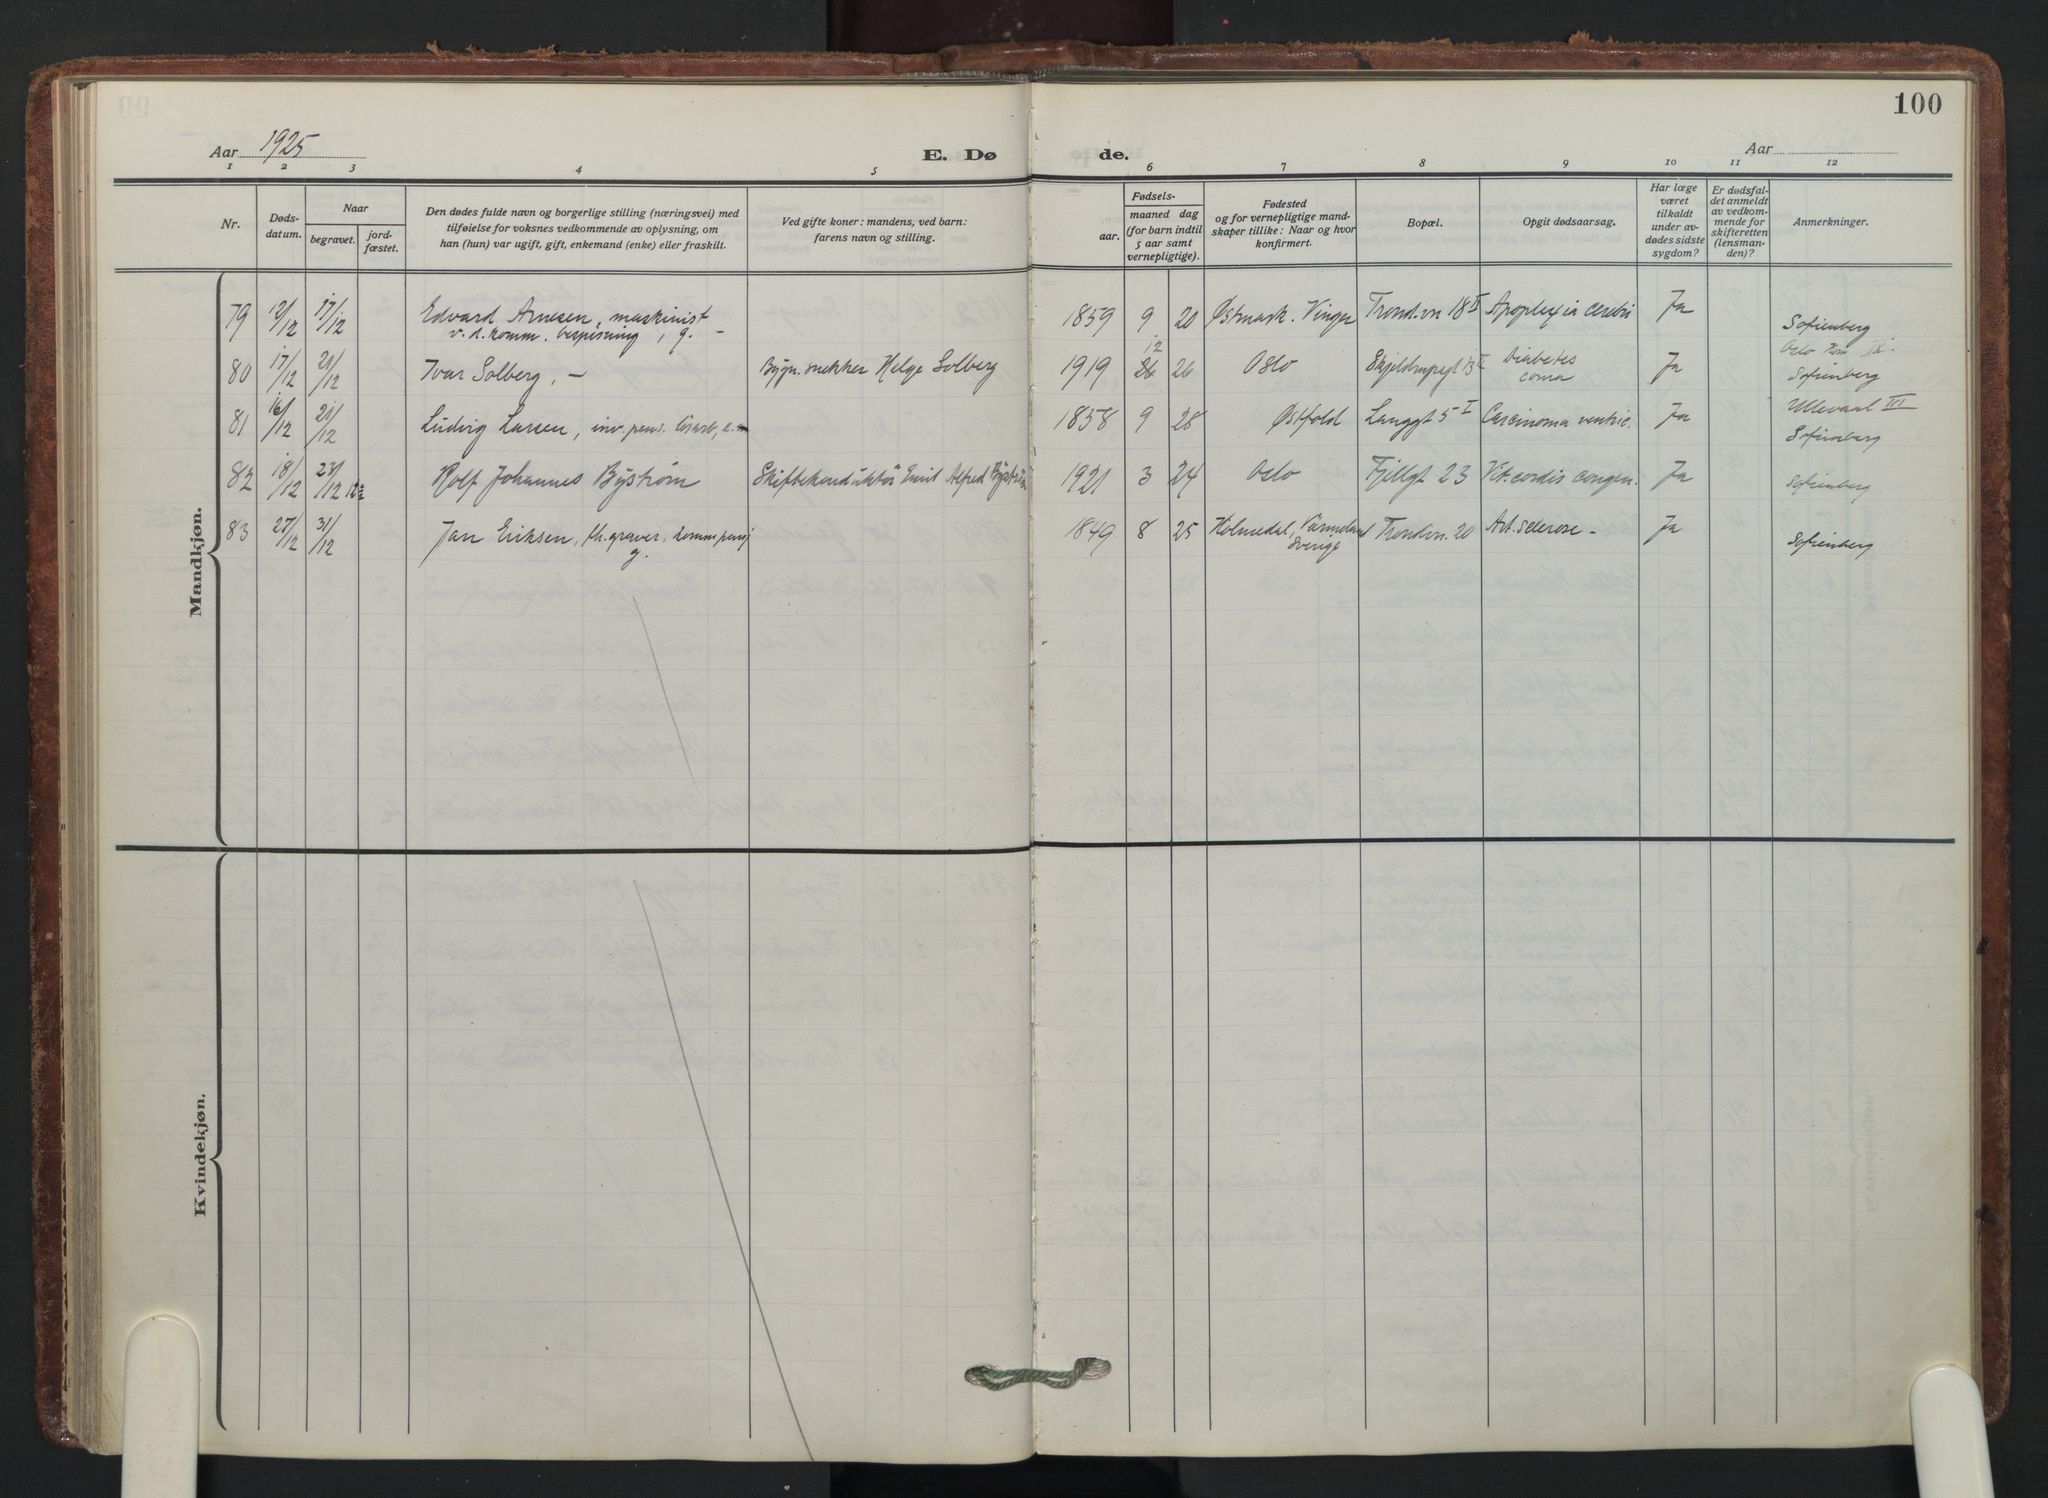 100
Aar 1925
E. Dø
de.
Aar
1 2 3 4 5 6 7 8 9 10 11 12
Nr.
Døds-
datum.
Naar
begravet.
jord-
fæstet.
Den dødes fulde navn og borgerlige stilling (næringsvei) med
tilføielse for voksnes vedkommende av oplysning, om
han (hun) var ugift, gift, enkemand (enke) eller fraskilt.
Ved gifte koner: mandens, ved barn:
farens navn og stilling.
Fødsels-
aar.
maaned dag
(for barn indtil
5 aar samt
vernepligtige).
Fødested
og for vernepligtige mand-
skaper tillike: Naar og hvor
konfirmert.
Bopæl.
Opgit dødsaarsag.
Har læge
været
tilkaldt
under av-
dødes sidste
sygdom?
Er dødsfal-
det anmeldt
av vedkom-
mende for
skifteretten
(lensman-
den)?
Anmerkninger.
Mandkjøn.
79 12/12 17/12 Edvard Arnesen, maskinist 1859 9 20 Østmark. Vinger Trond.vn 18 II Apoplexia cerebri Ja Sofienberg
v. d. komm. bespisning, g. -
80 17/12 21/12 Ivar Solberg, - Bygn. snekker Helge Solberg 1919 12 26 Oslo Diabetes Ja Sofienberg
coma
81 16/12 21/12 Ludvig Larsen, inv. pens. 1858 9 28 Østfold Langgt 5 I Carcinoma ventric. Ja Ullevaal VII
Sofienberg
82 18/12 23/12 Rolf Johannes Byström Emil Alfred Byström 1921 3 24 Oslo Fjellgt 23 Vit. cordis congen. Ja Sofienberg
83 27/12 31/12 Jan Eriksen, fh. graver, komm. pensj 1849 8 25 Holmedal, Värmland Trondvn. 20 Art. sclerose - Ja Sofienberg
g. Sverige
Kvindekjøn.